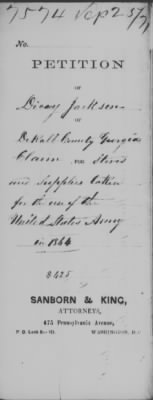 7574 Sep 25/71
No.
PETITION
OF
Dicay Jackson
OF
DeKalb County Georgia
Claim FOR Stores
and supplies taken
for the use of the
United States Army
in 1864
8425
SANBORN & KING,
ATTORNEYS,
475 Pennsylvania Avenue,
P. O. Lock Box
WASHINGTON, D.C.